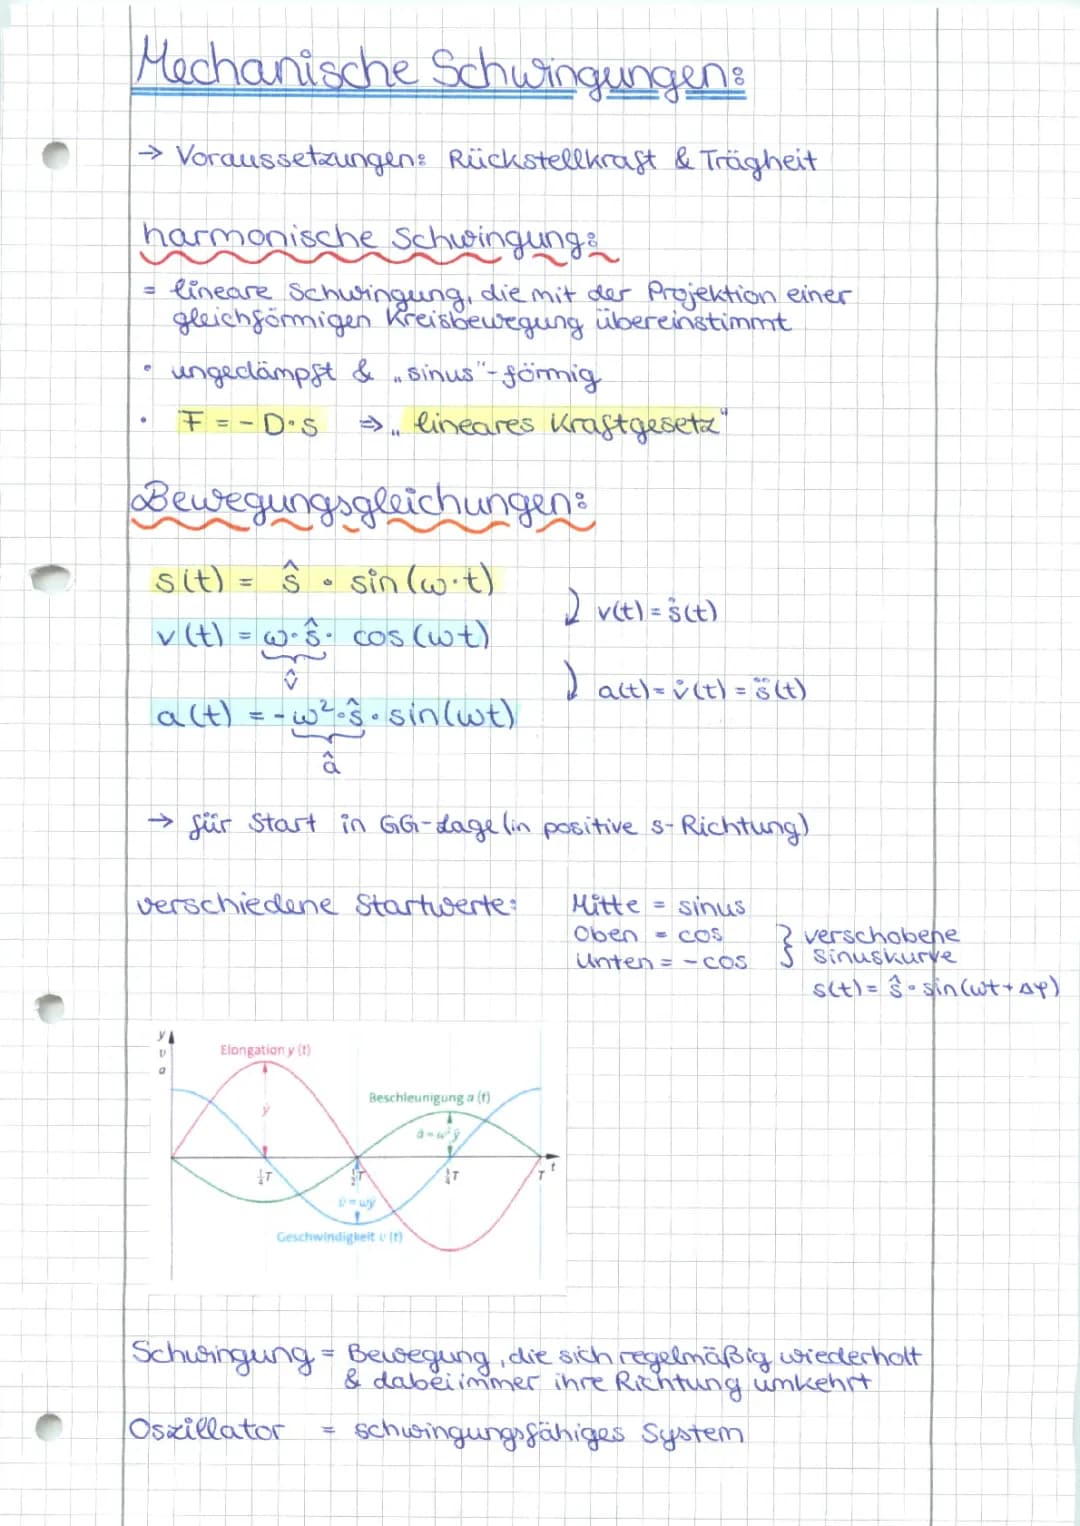 Mechanische Schwingungen:
→ Voraussetzungen: Rückstellkraft & Trägheit
harmonische Schwingung:
= lineare Schwingung, die mit der Projektion einer
gleichförmigen Kreisbewegung übereinstimmt
• ungedämpft & „sinus"-förmig
• F = - D·s ⇒ „lineares Kraftgesetz"
Bewegungsgleichungen:
s(t) = ŝ · sin(ω·t)
v(t) = ṡ(t)
v(t) = ω·ŝ· cos(ωt)
v̂
a(t) = v̇(t) = s̈(t)
a(t) = -ω²·ŝ·sin(ωt)
â
→ für Start in GG-Lage (in positive s-Richtung)
verschiedene Startwerte: Mitte = sinus
Oben = cos } verschobene
Unten = -cos sinuskurve
s(t) = ŝ·sin(ωt+Δφ)
y
v
a
Elongation y (t)
Beschleunigung a (t)
ŷ
â=ω²ŷ
¼T ½T ¾T T t
v̂=ωŷ
Geschwindigkeit v (t)
Schwingung = Bewegung, die sich regelmäßig wiederholt
& dabei immer ihre Richtung umkehrt
Oszillator = schwingungsfähiges System